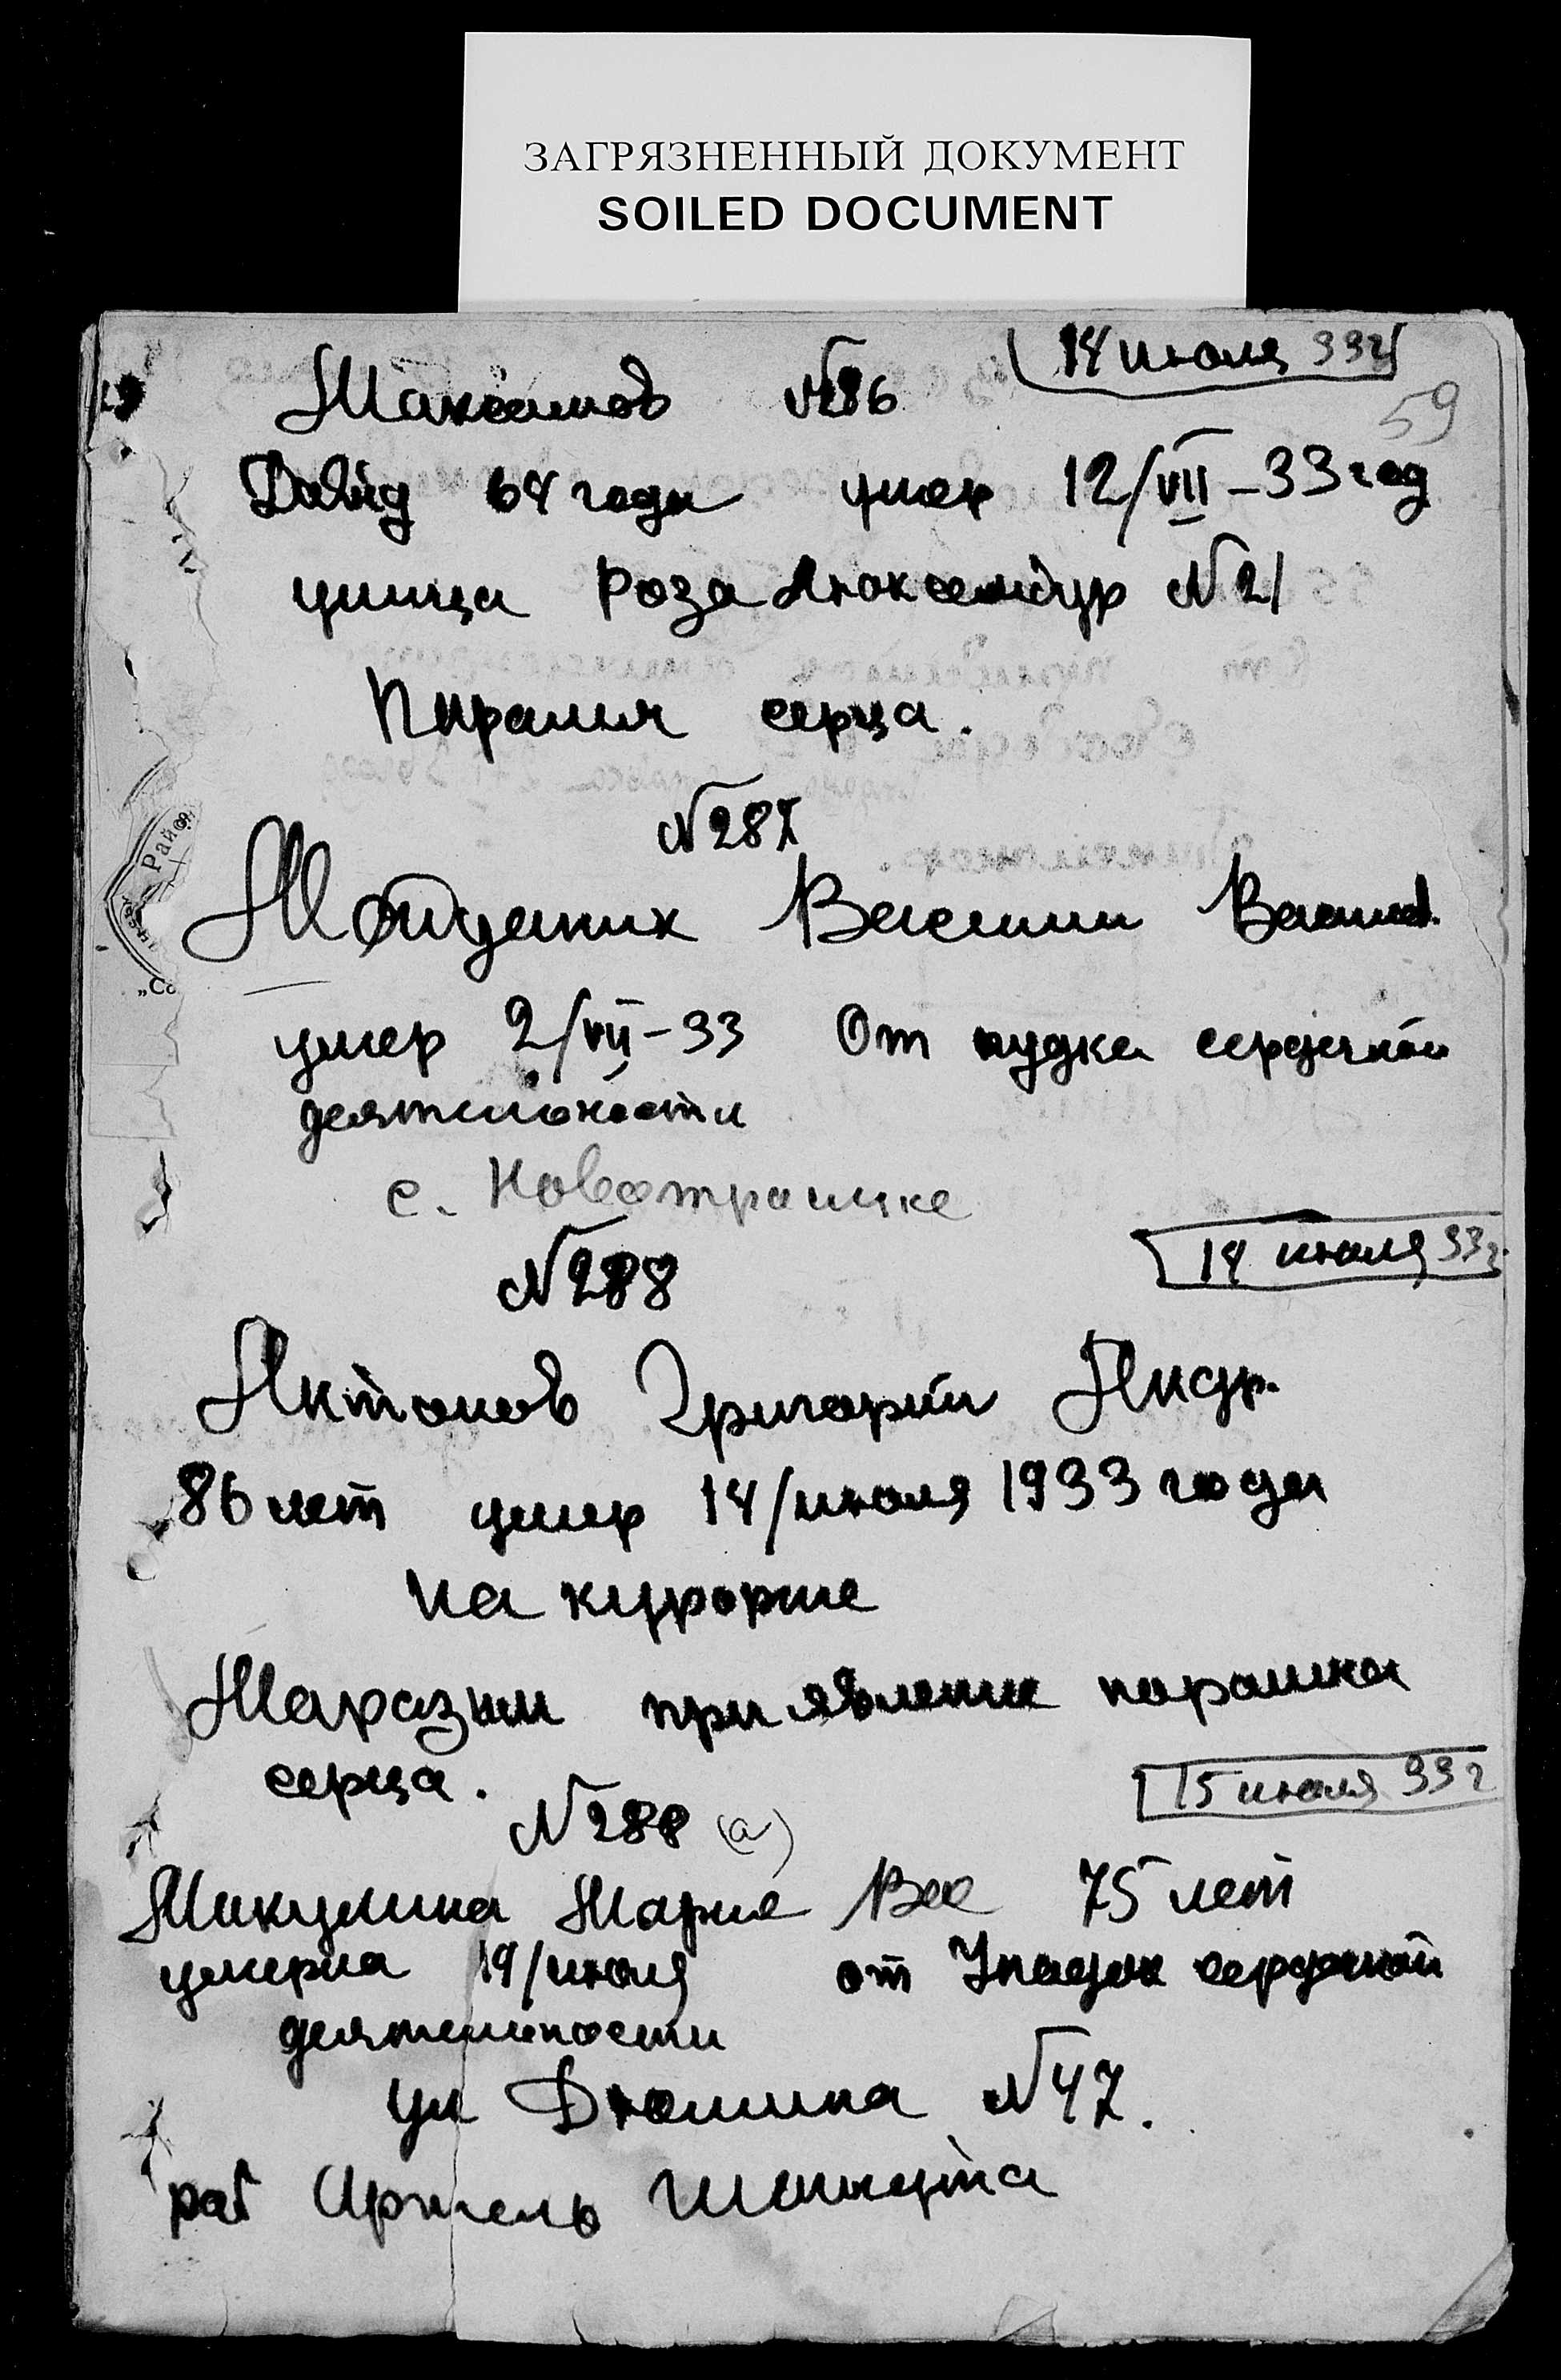 ЗАГРЯЗНЕННЫЙ ДОКУМЕНТ
SOILED DOCUMENT
14 июля 33г
59
Максимов №286
Давид 64 года умер 12/VII-33 год
улица Роза Люксембур №21
Паралич серца.
№287
Майданик Василий Василь.
умер 2/VII-33 От сердечной
деятельности
с. Новотроицке
№288
14 июля 33г.
Антонов Григорий Андр.
86 лет умер 14/июля 1933 года
на курорте
Маразм при явление паралича
серца.
15 июля 33г
№288 (а)
Микулина Мария Вас 75 лет
умерла 14/июля от Упадок сердечной
деятельности
ул Дюмина №47.
раб Артель
Район
„Со